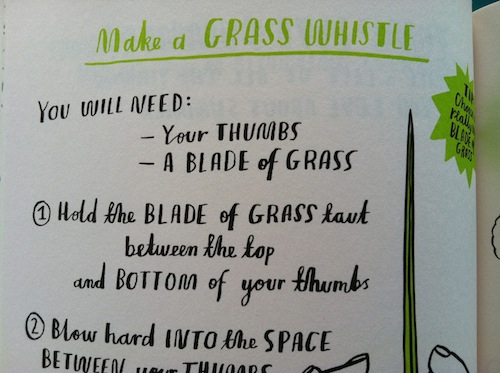 Make a GRASS WHISTLE
YOU WILL NEED:
– Your THUMBS
– A BLADE of GRASS
① Hold the BLADE of GRASS taut
between the top
and BOTTOM of your thumbs
② Blow hard INTO the SPACE
BETWEEN your THUMBS
BLADE
GRASS